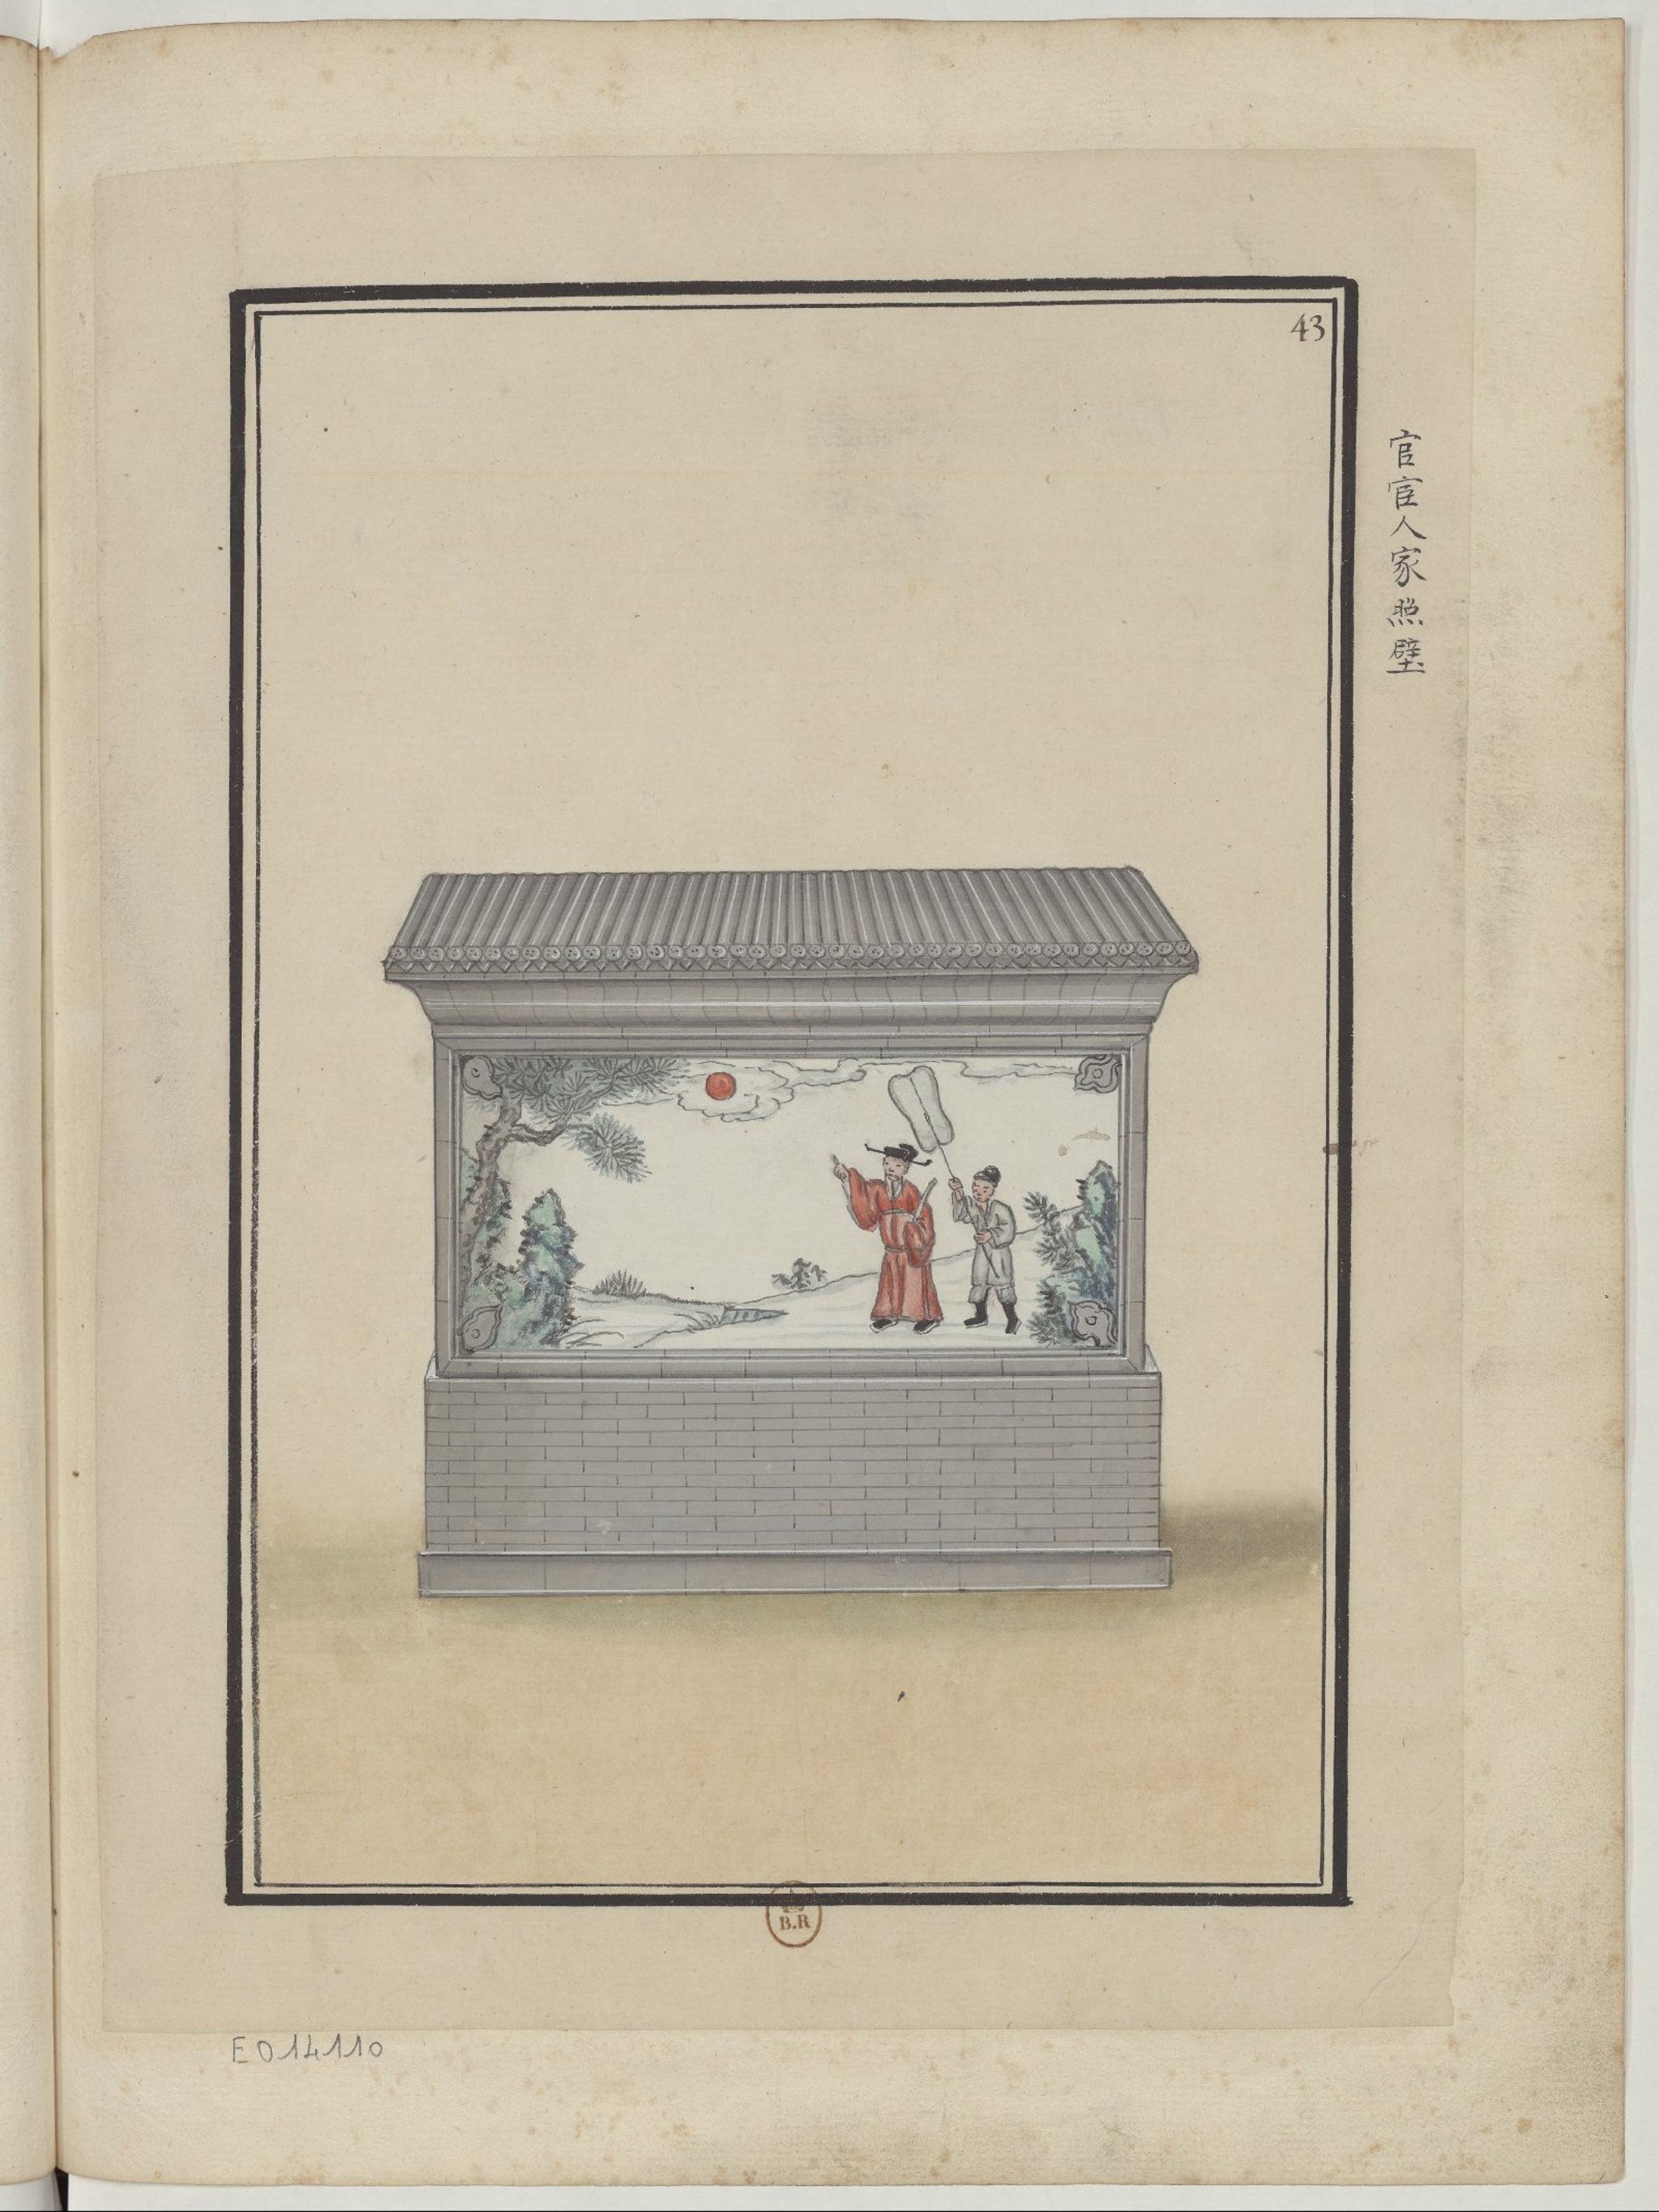 43
官宦人家照壁
B.R
E014110